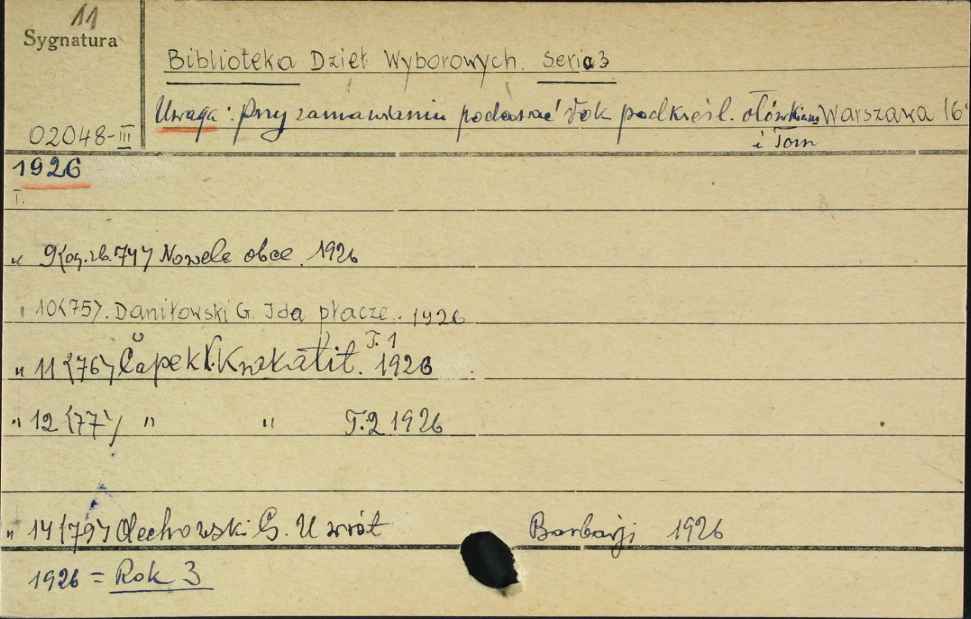 11
Sygnatura
Biblioteka Dzieł Wyborowych. Serja 3
Uwaga: Przy zamawianiu podawać rok podkreśl. ołówkiem Warszawa 16°
i Tom
02048-III
1926
T.
" 9 (og. zb. 74) Nowele obce. 1926
" 10 (75). Daniłowski G. Ida płacze. 1926
" 11 (76) Čapek K. Krakatit. T.1 1926
" 12 (77) " " T.2 1926
" 14 (79) Olechowski G. U wrót Barbarji 1926
1926 = Rok 3